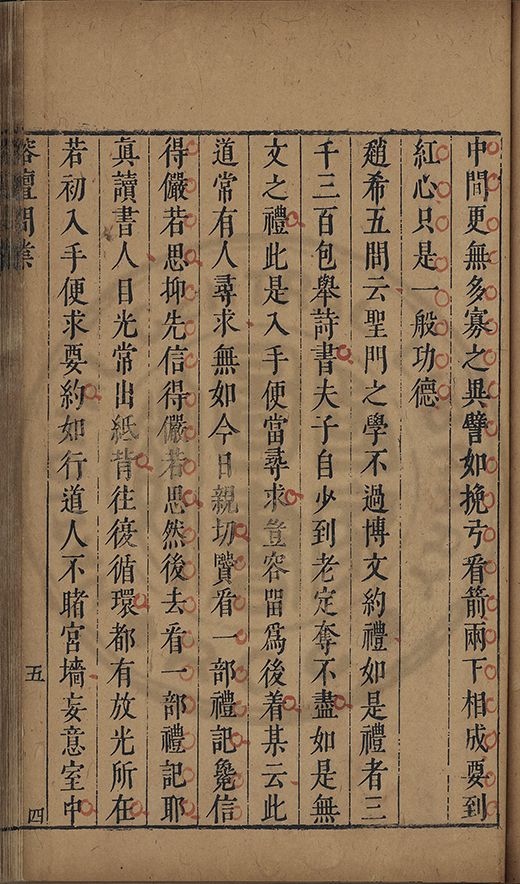 中間更無多寡之異譬如挽弓看箭兩下相成要到
紅心只是一般功德
趙希五問云聖門之學不過博文約禮如是禮者三
千三百包舉詩書夫子自少到老定奪不盡如是無
文之禮此是入手便當尋求豈容留為後着某云此
道常有人尋求無如今日親切贒看一部禮記毚信
得儼若思抑先信得儼若思然後去看一部禮記耶
眞讀書人目光常出紙背往復循環都有放光所在
若初入手便求要約如行道人不睹宮墻妄意室中
榕壇問業
五
四